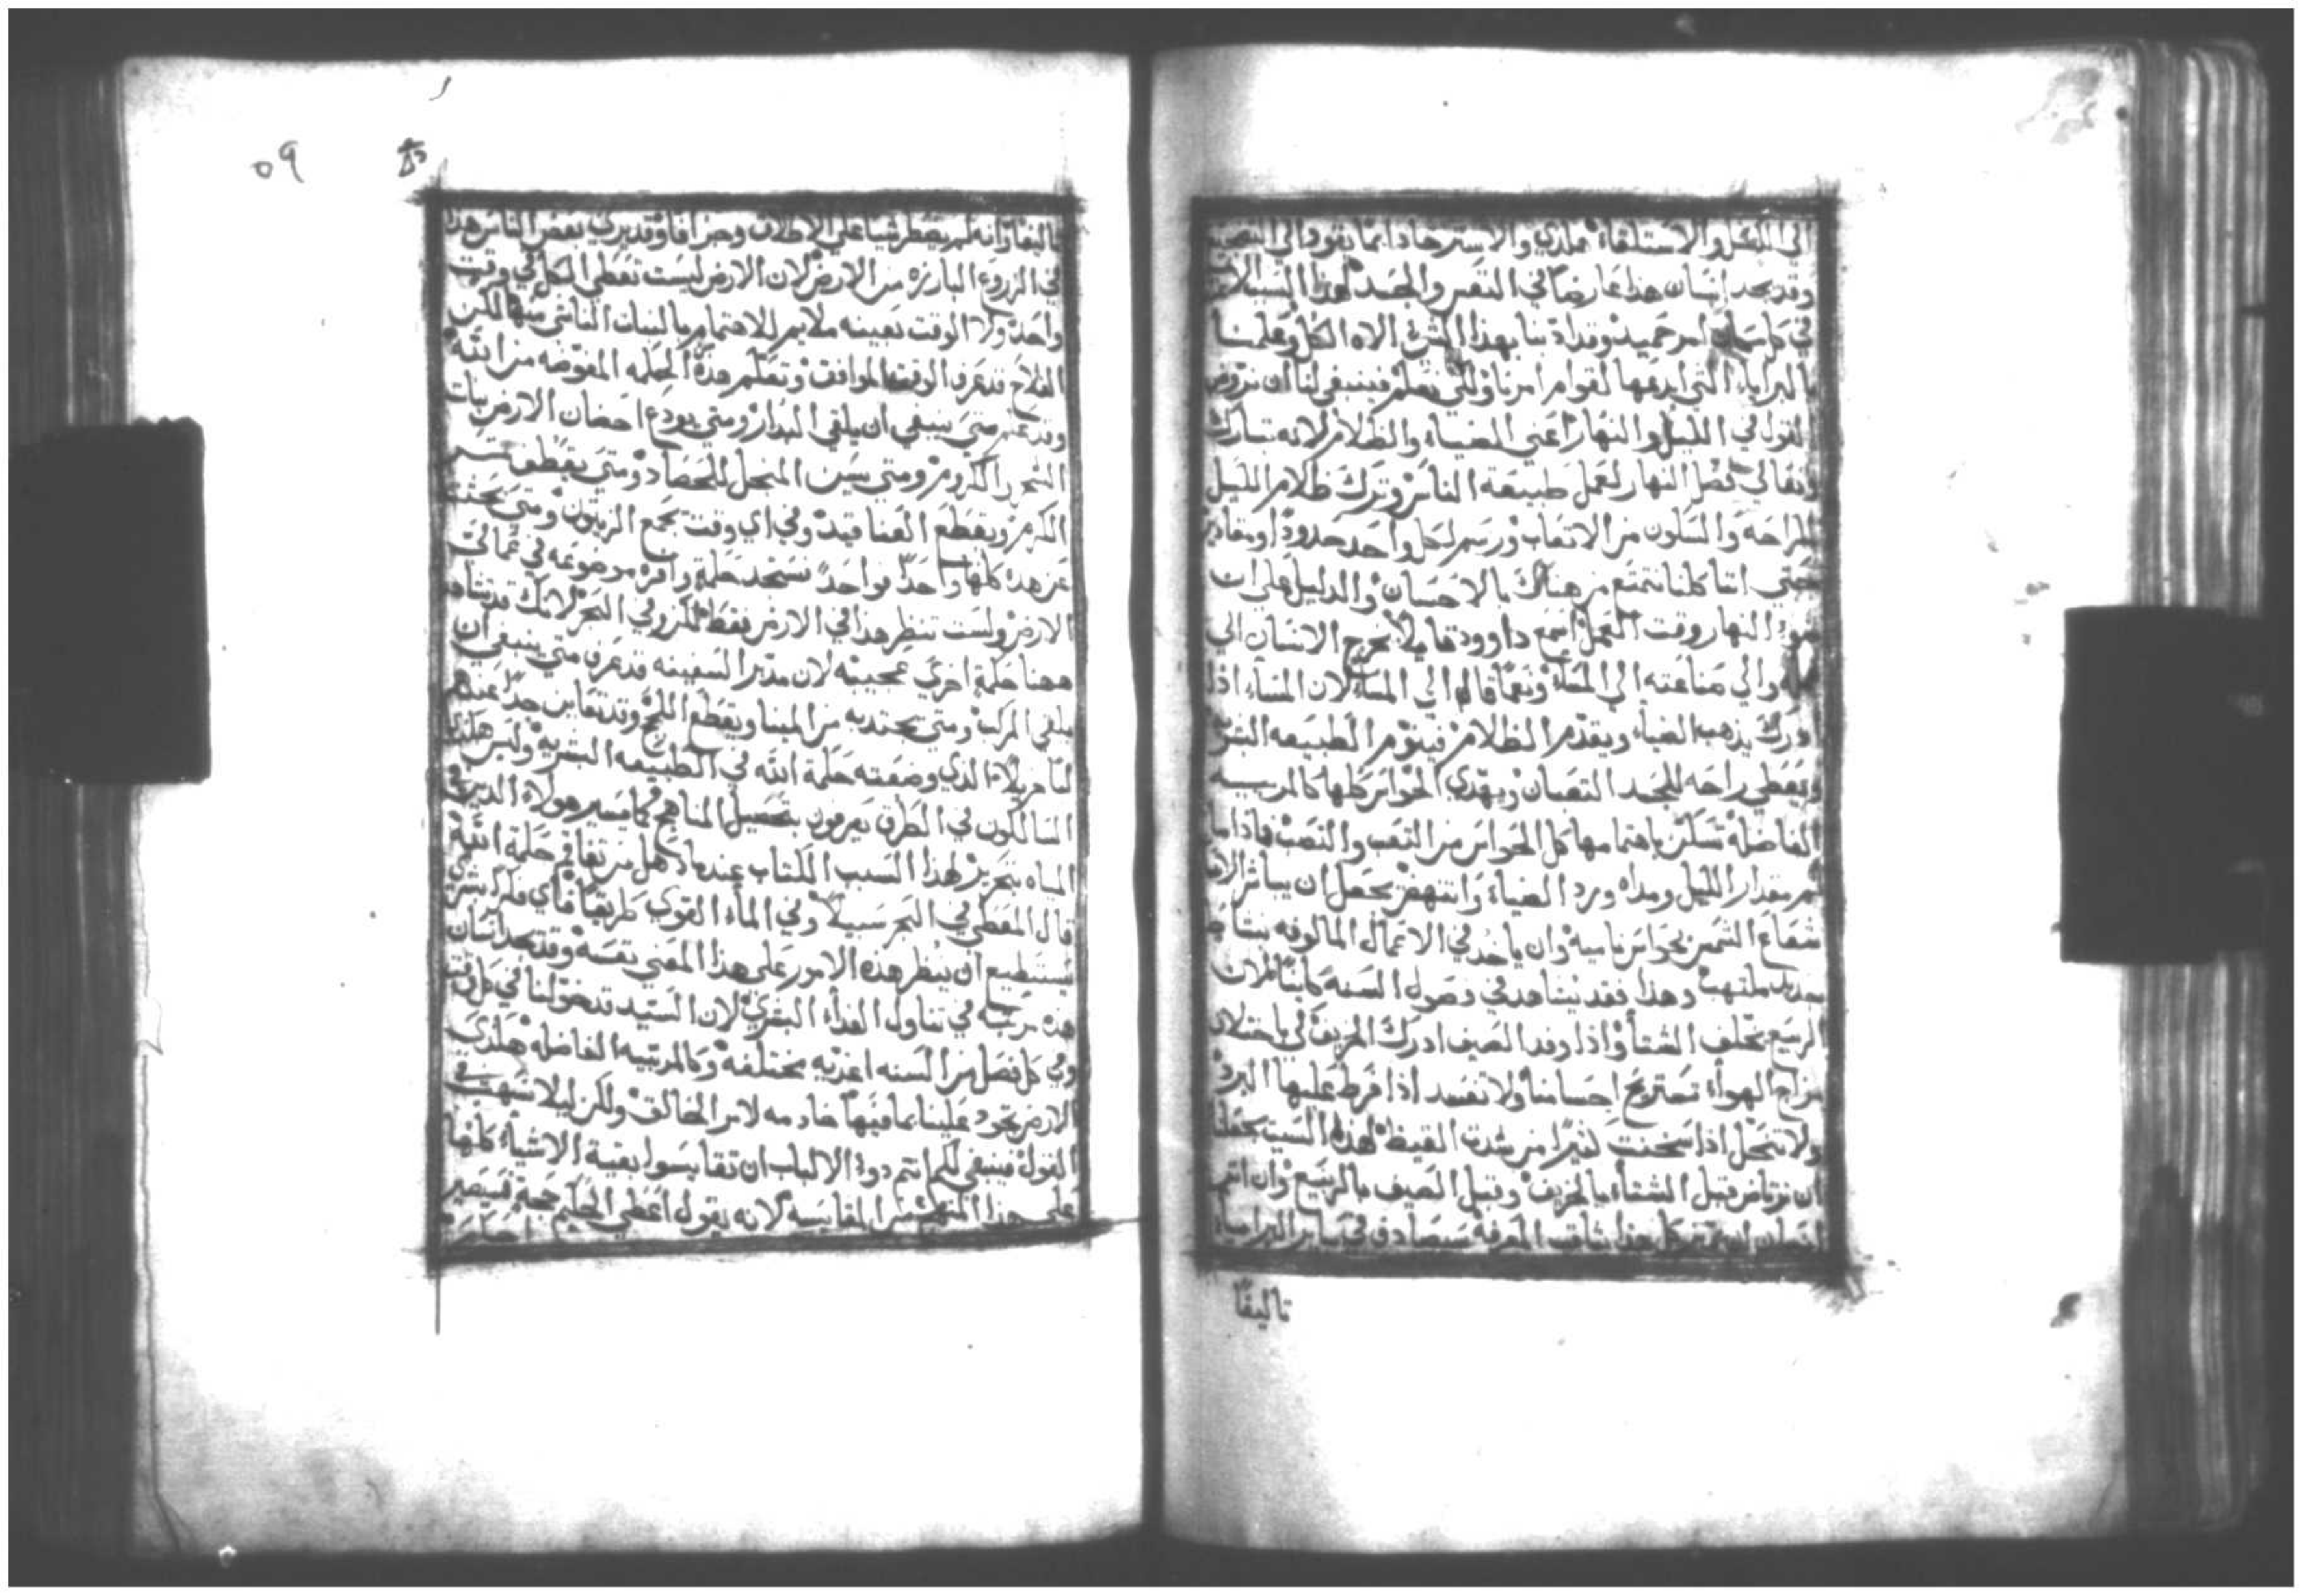 الي الكسل والاستلقاء هكذي والاسترخا دايما يقود الي
وقد يجد انسان هذا عارضا في النفس والجسد لهذا السبب لان
في كل امر حميد وقد ادبنا بهذا المثري الاه الكل وعلمنا
بالبرايا التي ابدعها لقوام امرنا ولكي نعلم فينبغي لنا ان نروض
القول في الليل والنهار اعني الضياء والظلام لانه تبارك
وتعالي فصل النهار لعمل طبيعة الناس وترك ظلام الليل
للراحه والسكون من الاتعاب ورسم لكل واحد حدودا ومقادير
حتي اننا كلنا نتمتع من هناك بالاحسان والدليل علي ان
ضوء النهار وقت العمل اسمع داوود قايلا يخرج الانسان الي
عمله والي صناعته الي المساء ونعما قال الي المساء لان المساء اذا
ادرك يذهب الضياء ويقدم الظلام فينوم الطبيعه البشريه
ويعطي راحه للجسد التعبان ويهدي الحواس كلها كالمربيه
الفاضله تسكن باهتمامها كل الحواس من التعب والنصب فاذا ما
تم مقدار الليل ومداه ورد الضياء وانتهض يجعل ان يباشر الانسان
شعاع الشمس بحواس ناميه وان ياخذ في الاعمال المالوفه بنشاط
جديد ملتهب وهذا فقد نشاهد في فصول السنه كاينا لان
الربيع يخلف الشتاء واذا وفد الصيف ادرك الخريف لكي باختلاف
مزاج الهواء تستريح اجسامنا ولا تفسد اذا فرط عليها البرد
ولا تنحل اذا سخنت كثيرا من شدت القيظ لهذا السبب يجعلنا
ان نرتاض قبل الشتاء بالخريف وقبل الصيف بالربيع وان انتم
انسان ان يميز كل هذا بثاقب المعرفه سيصادف في ساير البرايا
تاليفا
٥٩
تاليفا وانه لم يصطر شيا علي الاطلاق وجزافا وقد يري بعض الناس هذا
في الزروع البارزه من الارض لان الارض ليست تعطي الكل في وقت
واحد ولا الوقت بعينه ملايم للاهتمام بالنبات الناشي منها لكن
الفلاح قد عرف الوقت الموافق وتعلم هذه الحكمه المفوضه من الله
وقد علم متي ينبغي ان يلقي البدار ومتي يودع احضان الارض نبات
الشجر والكروم ومتي يسن المنجل للحصاد ومتي يقطف
الكرم ويقطع العناقيد وفي اي وقت يجمع الزيتون ومتي يحثت
عن هذه كلها واحدا فواحدا ستجد حكمة وافره موضوعه في عمالت
الارض ولست تنظر هذا في الارض فقط لكن وفي البحر لانك قد تشاهد
ههنا حكمة اخري عجيبه لان مدبر السفينه قد عرف متي ينبغي ان
يلقي المركب ومتي يجتدبه من المينا ويقطع اللج وقد تعاين حدا عندهم
لناهزيلاء الذي وضعته حكمة الله في الطبيعه البشريه وليس هكذا
السالكون في الطرق يعرفون بتحصيل المناهج كما يسير هولاء الذين في
المياه بتحريز لهذا السبب الكتاب عندما دهل من تفاقم حكمة الله
قال المعطي في البحر سبيلا وفي الماء القوي طريقا فاي فكر بشري
يستطيع ان ينظر هذه الامور علي هذا المعني نفسه وقد يجد انسان
هذه مرتبه في تناول الغداء البشري لان السيد قد خولنا في كل وقت
وفي كل فصل من السنه اغديه مختلفه وكالمربيه الفاضله هكذي
الارض تجود علينا بما فيها خادمه لامر الخالق ولكن ليلا نسهب في
القول فينبغي لكم انتم دوي الالباب ان تقايسوا بقية الاشياء كلها
علي هذا المنهج من المقايسه لانه يقول اعطي الحكيم حجة فيصير